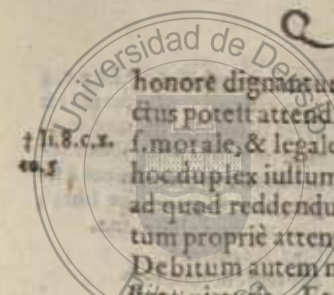 Q
honorē dignantur
ctus potest attendi
† li.8.c.1. s.morale, & legale
co.5 hoc duplex iustum
ad quod reddendu
tum propriè atten
Debitum autem m